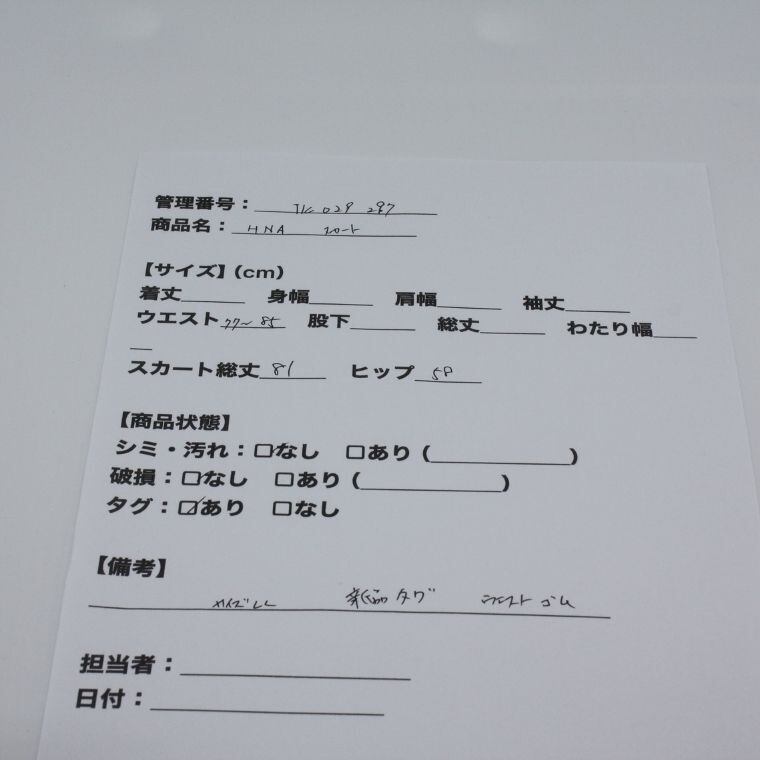 管理番号：TK 029 287
商品名：HNA スカート
【サイズ】(cm)
着丈______ 身幅______ 肩幅______ 袖丈______
ウエスト 77~85 股下______ 総丈______ わたり幅____
__
スカート総丈 81 ヒップ 58
【商品状態】
シミ・汚れ：☐なし ☐あり (____________)
破損：☐なし ☐あり (____________)
タグ：☑あり ☐なし
【備考】
サイズLL 新品タグ ウエストゴム
担当者：____________
日付：____________